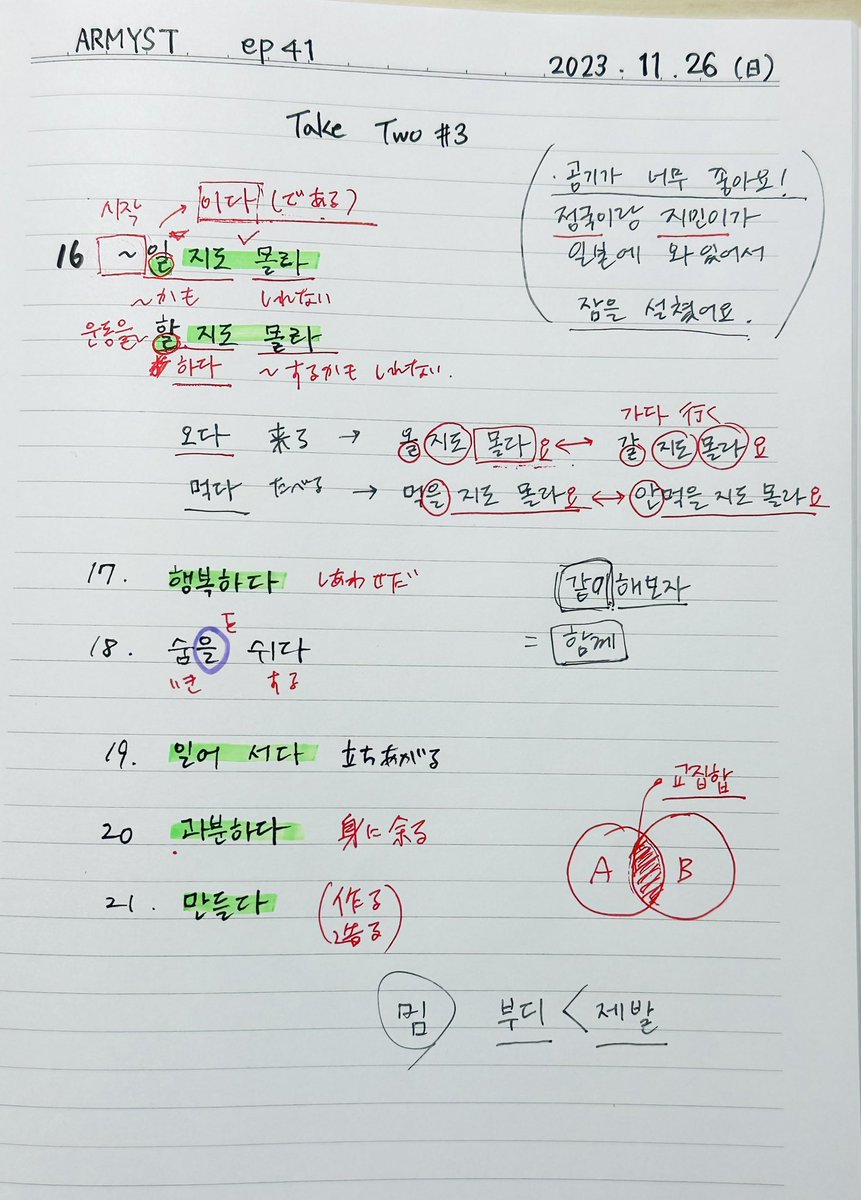 ARMYST ep 41 2023.11.26 (日)
Take Two #3
· 공기가 너무 좋아요!
정국이랑 지민이가
일본에 와 있어서
잠을 설쳤어요.
시작 이다 (である)
16 ~일 지도 몰라
~かも しれない
운동을~ 할 지도 몰라
하다 ~するかも しれない.
가다 行く
오다 来る → 올 지도 몰라요 ↔ 갈 지도 몰라요
먹다 たべる → 먹을 지도 몰라요 ↔ 안먹을 지도 몰라요
17. 행복하다 しあわせだ
같이 해보자
= 함께
を
18. 숨을 쉬다
いき する
19. 일어 서다 立ちあがる
교집합
20 과분하다 身に余る
A B
21. 만들다 (作る
造る)
밈 부디 < 제발